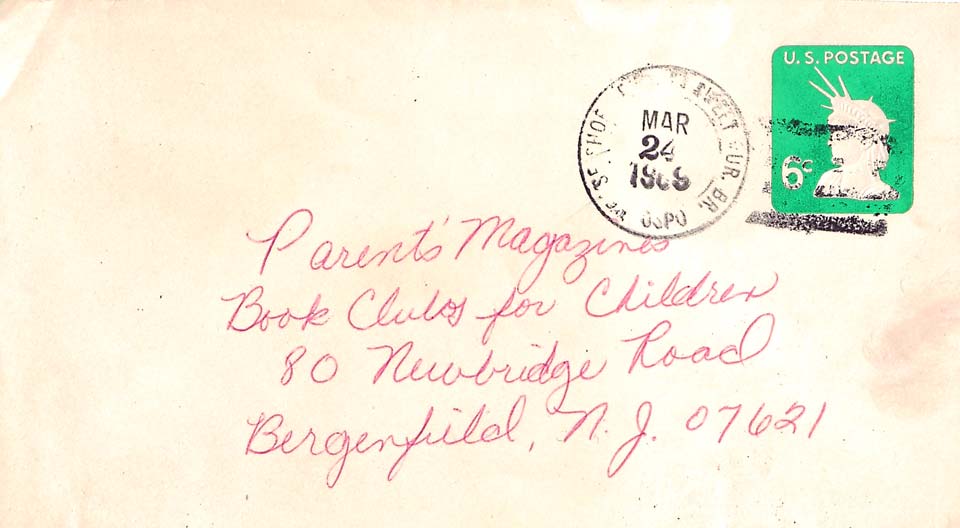 U.S. POSTAGE
6c
MAR
24
1969
BR.
USPO
Parent's Magazines
Book Clubs for Children
80 Newbridge Road
Bergenfield, N. J. 07621